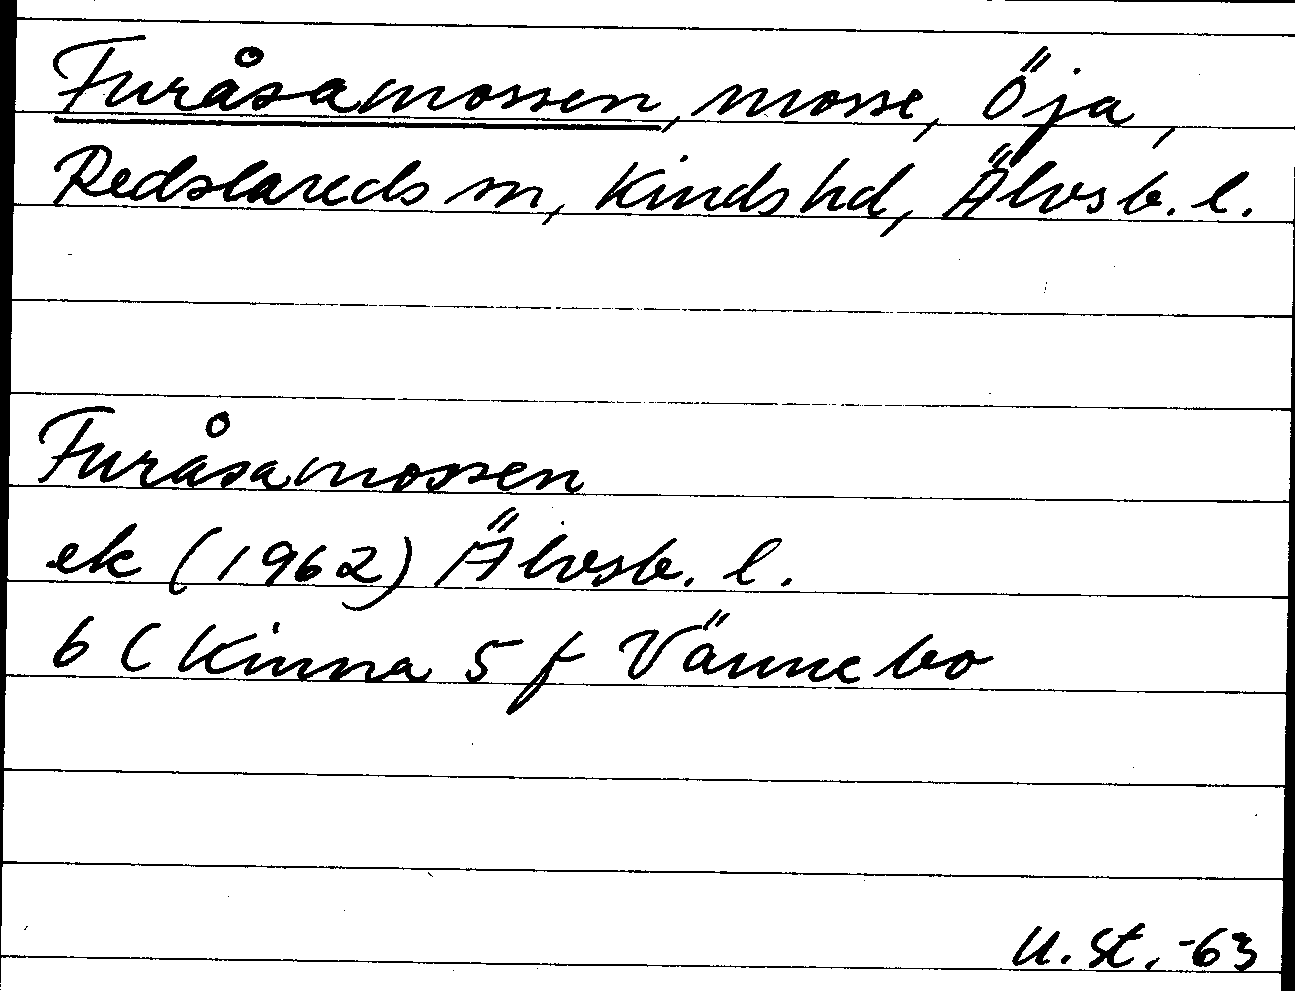 Furåsamossen, mosse, Öja,
Redslareds sn, Kinds hd, Älvsb. l.
Furåsamossen
ek (1962) Älvsb. l.
6 C Kinna 5 f Vännebo
U. St. -63